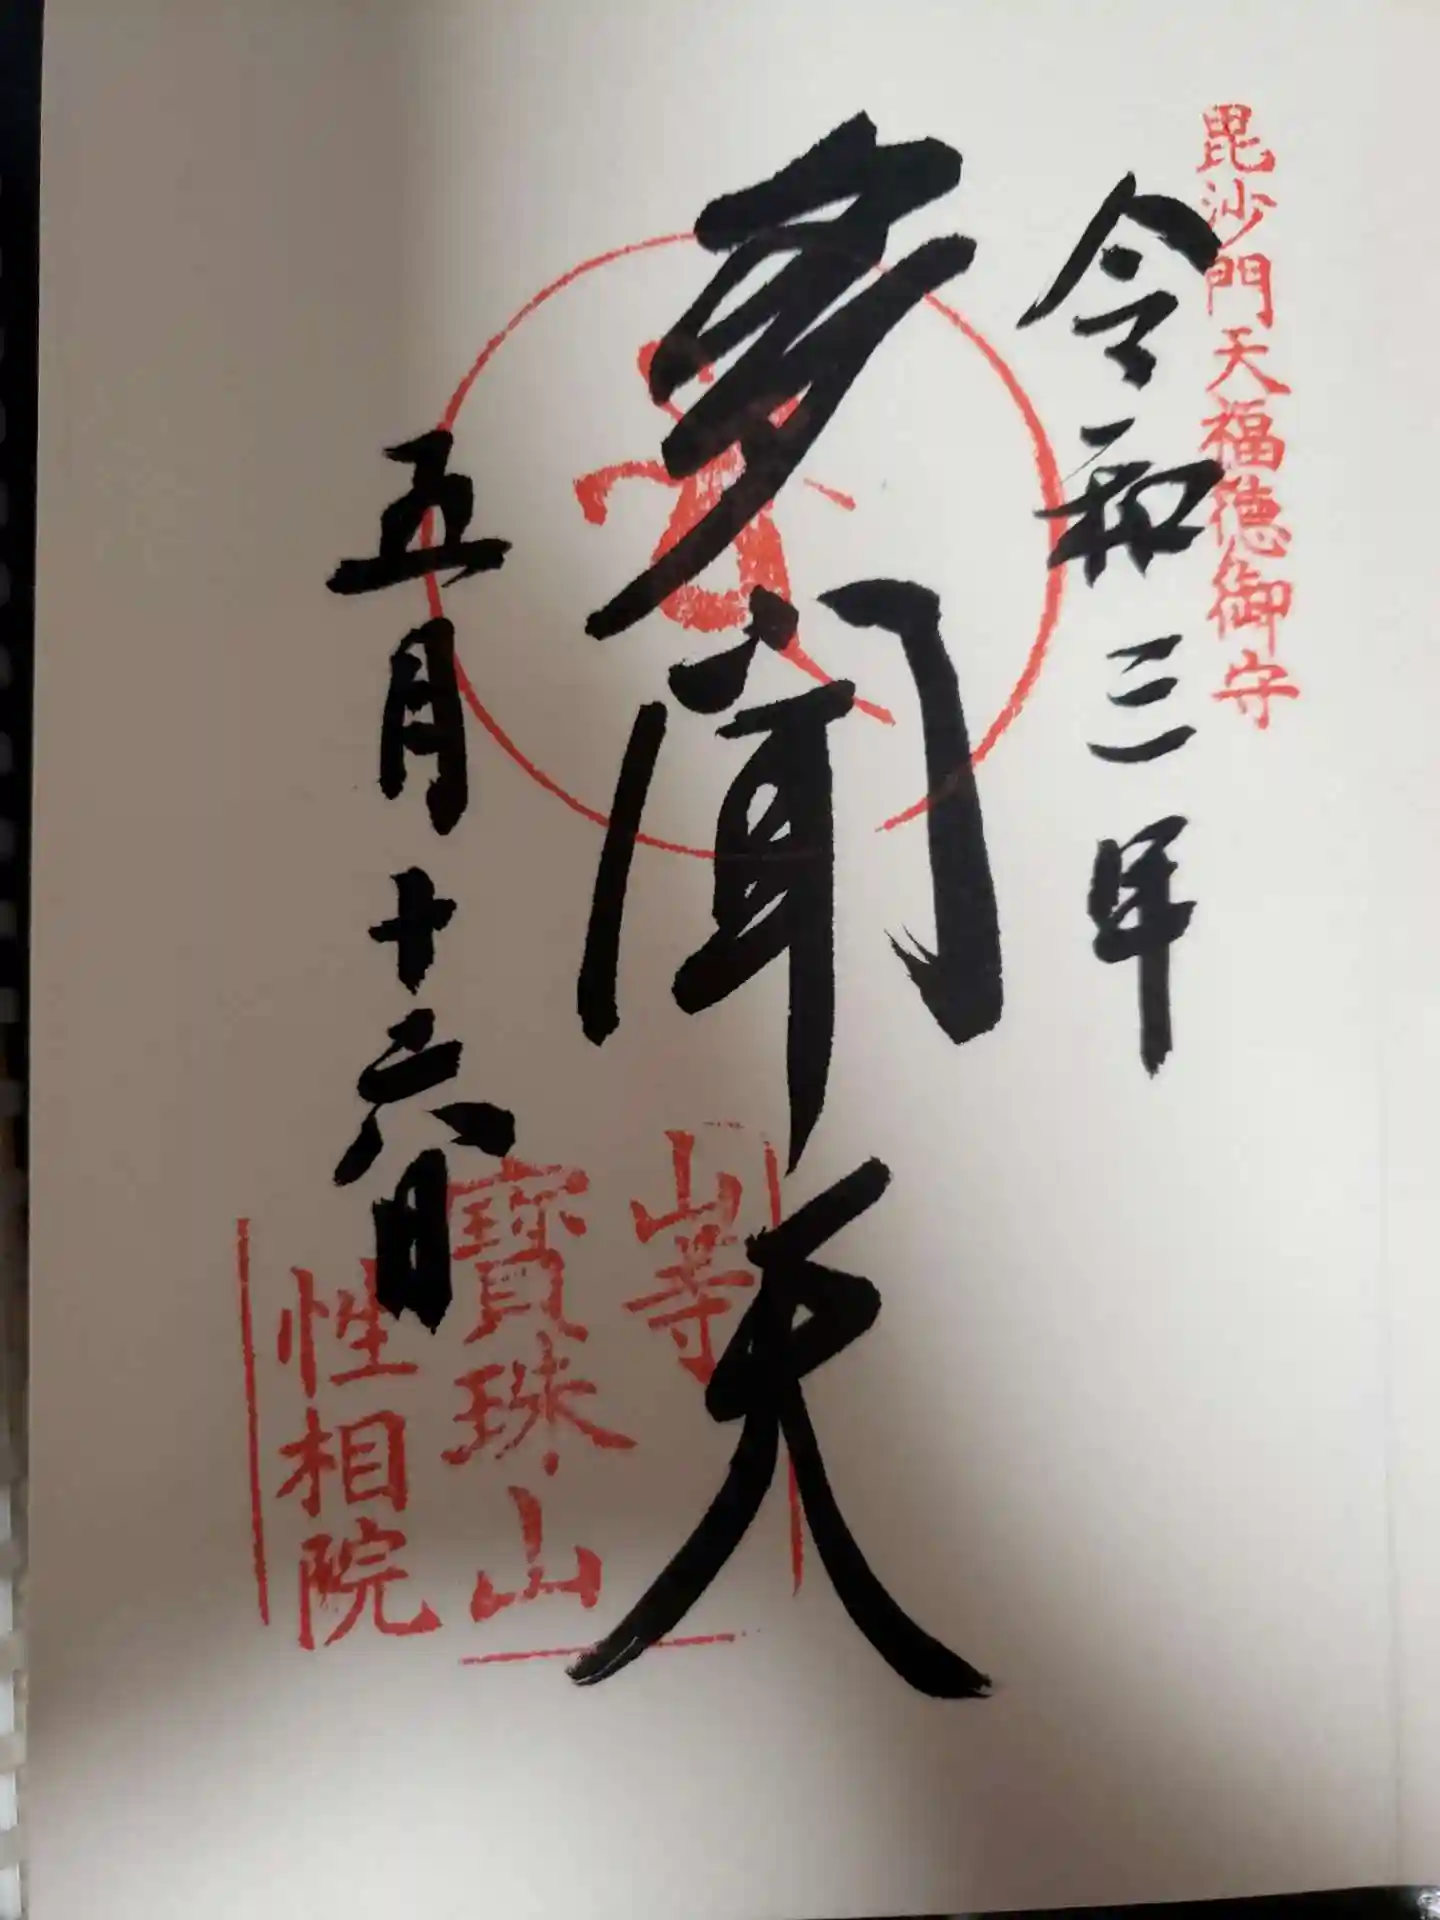 毘沙門天福徳御守
令和三年
多聞天
五月十六日
山寺
寳珠山
性相院